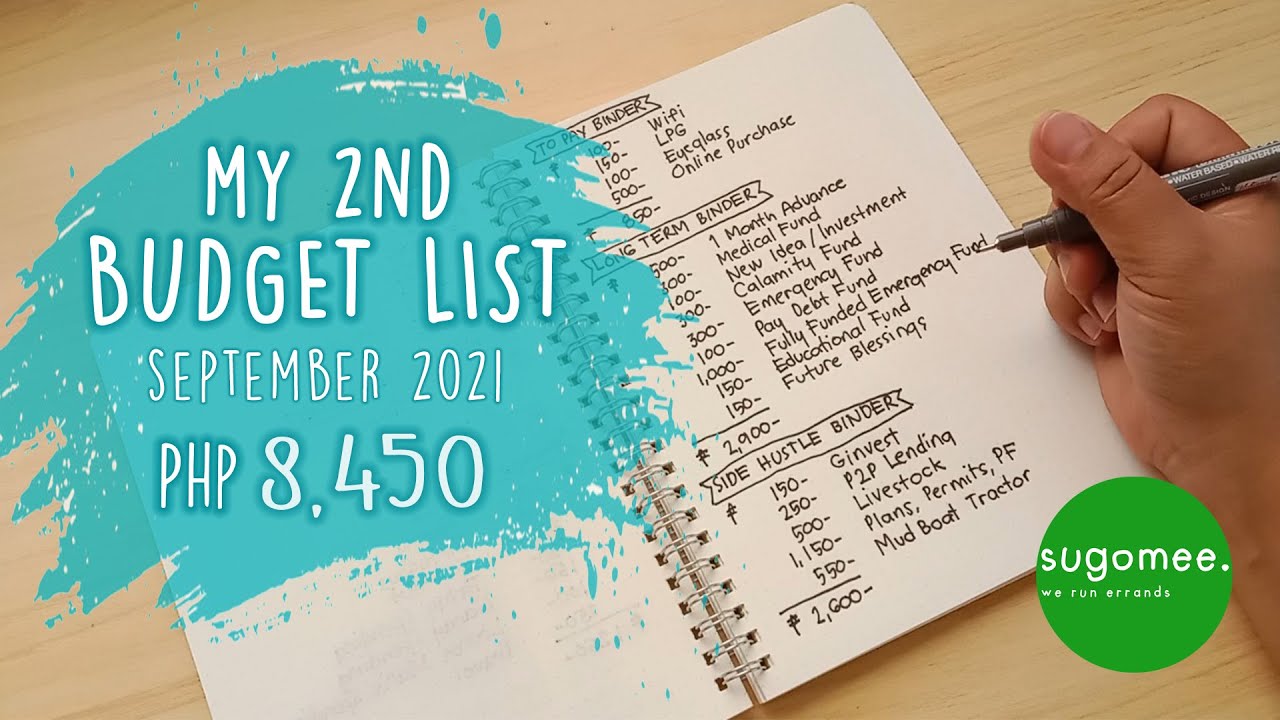 MY 2ND
BUDGET LIST
SEPTEMBER 2021
PHP 8,450
TO PAY BINDER
₱ 100- Wifi
150- LPG
100- Eyeglass
500- Online Purchase
₱ 850-
LONG TERM BINDER
500- 1 Month Advance
300- Medical Fund
100- New Idea / Investment
300- Calamity Fund
300- Emergency Fund
100- Pay Debt Fund
1,000- Fully Funded Emergency Fund
150- Educational Fund
150- Future Blessings
₱ 2,900-
SIDE HUSTLE BINDER
₱ 150- Ginvest
250- P2P Lending
500- Livestock
1,150- Plans, Permits, PF
550- Mud Boat Tractor
₱ 2,600-
WATER BASED
DESIGN
sugomee.
we run errands